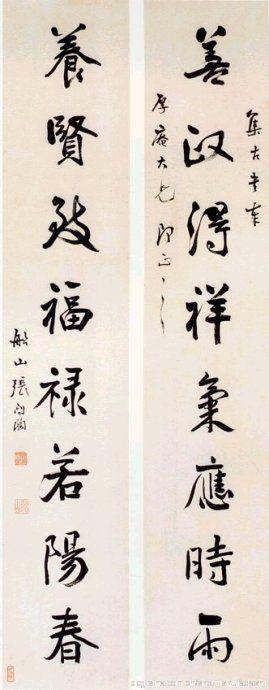 集古書奉
善政得祥氣應時雨
厚庵大兄 即正
養賢致福祿若陽春
船山張問陶